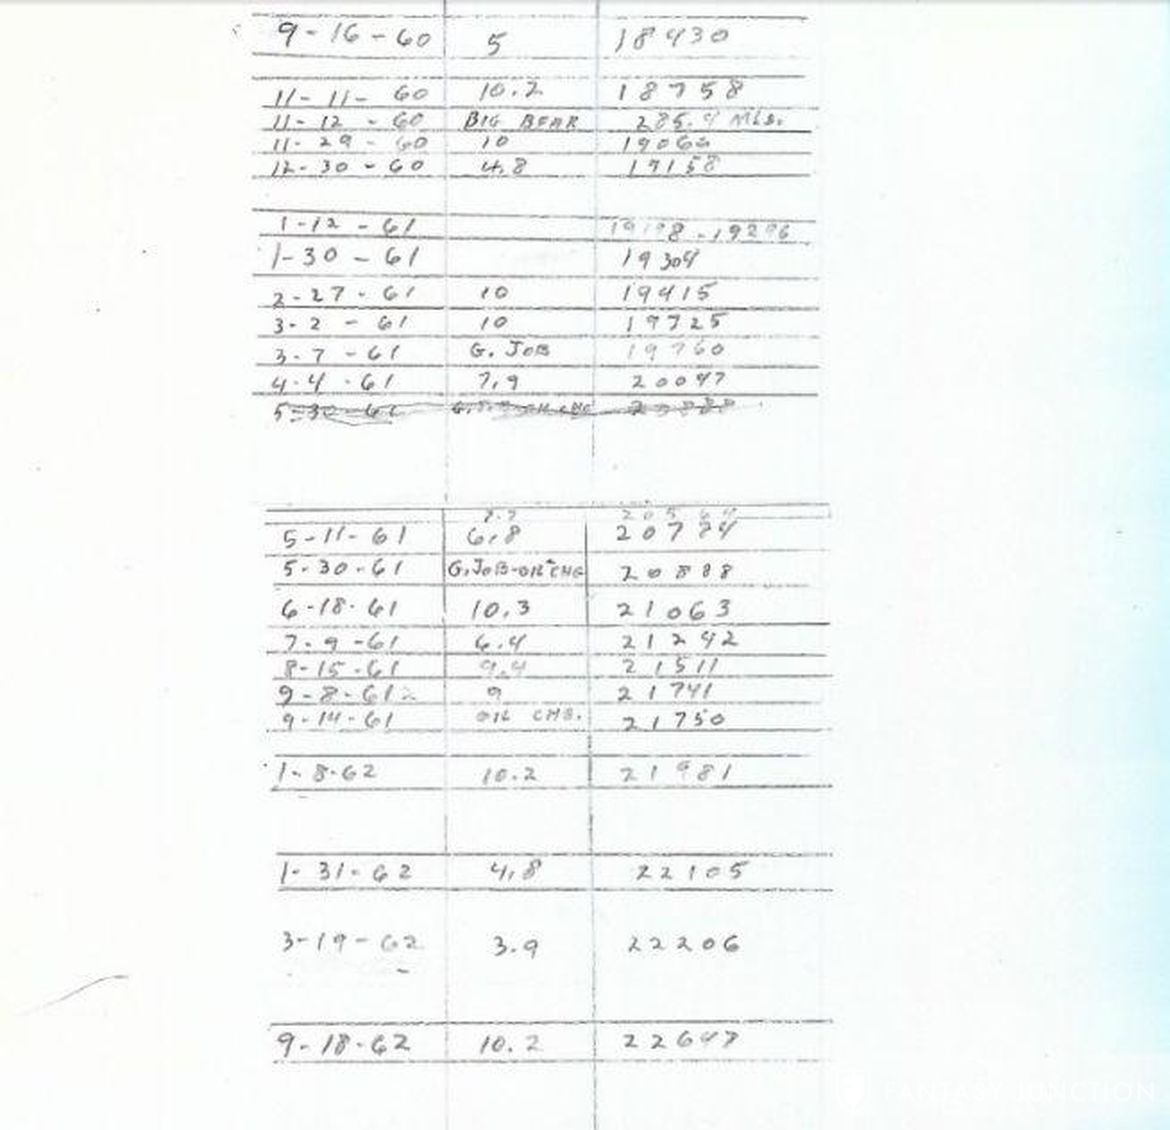 9-16-60 5 18430
11-11-60 10.2 18758
11-12-60 BIG BEAR 285.4 MLS.
11-29-60 10
12-30-60 4.8 19158
1-12-61
1-30-61 19304
2-27-61 10 19415
3-2-61 10 19725
3-7-61 G. JOB 19760
4-4-61 7.9 20047
5-30-61
5-11-61 6.8
5-30-61 G.JOB-OIL CHG 20888
6-18-61 10.3 21063
7-9-61 6.4 21242
8-15-61 9.4 21511
9-8-61 9 21741
9-14-61 OIL CHG. 21750
1-8-62 10.2 21981
1-31-62 4.8 22105
3-19-62 3.9 22206
9-18-62 10.2
FANTASY JUNCTION